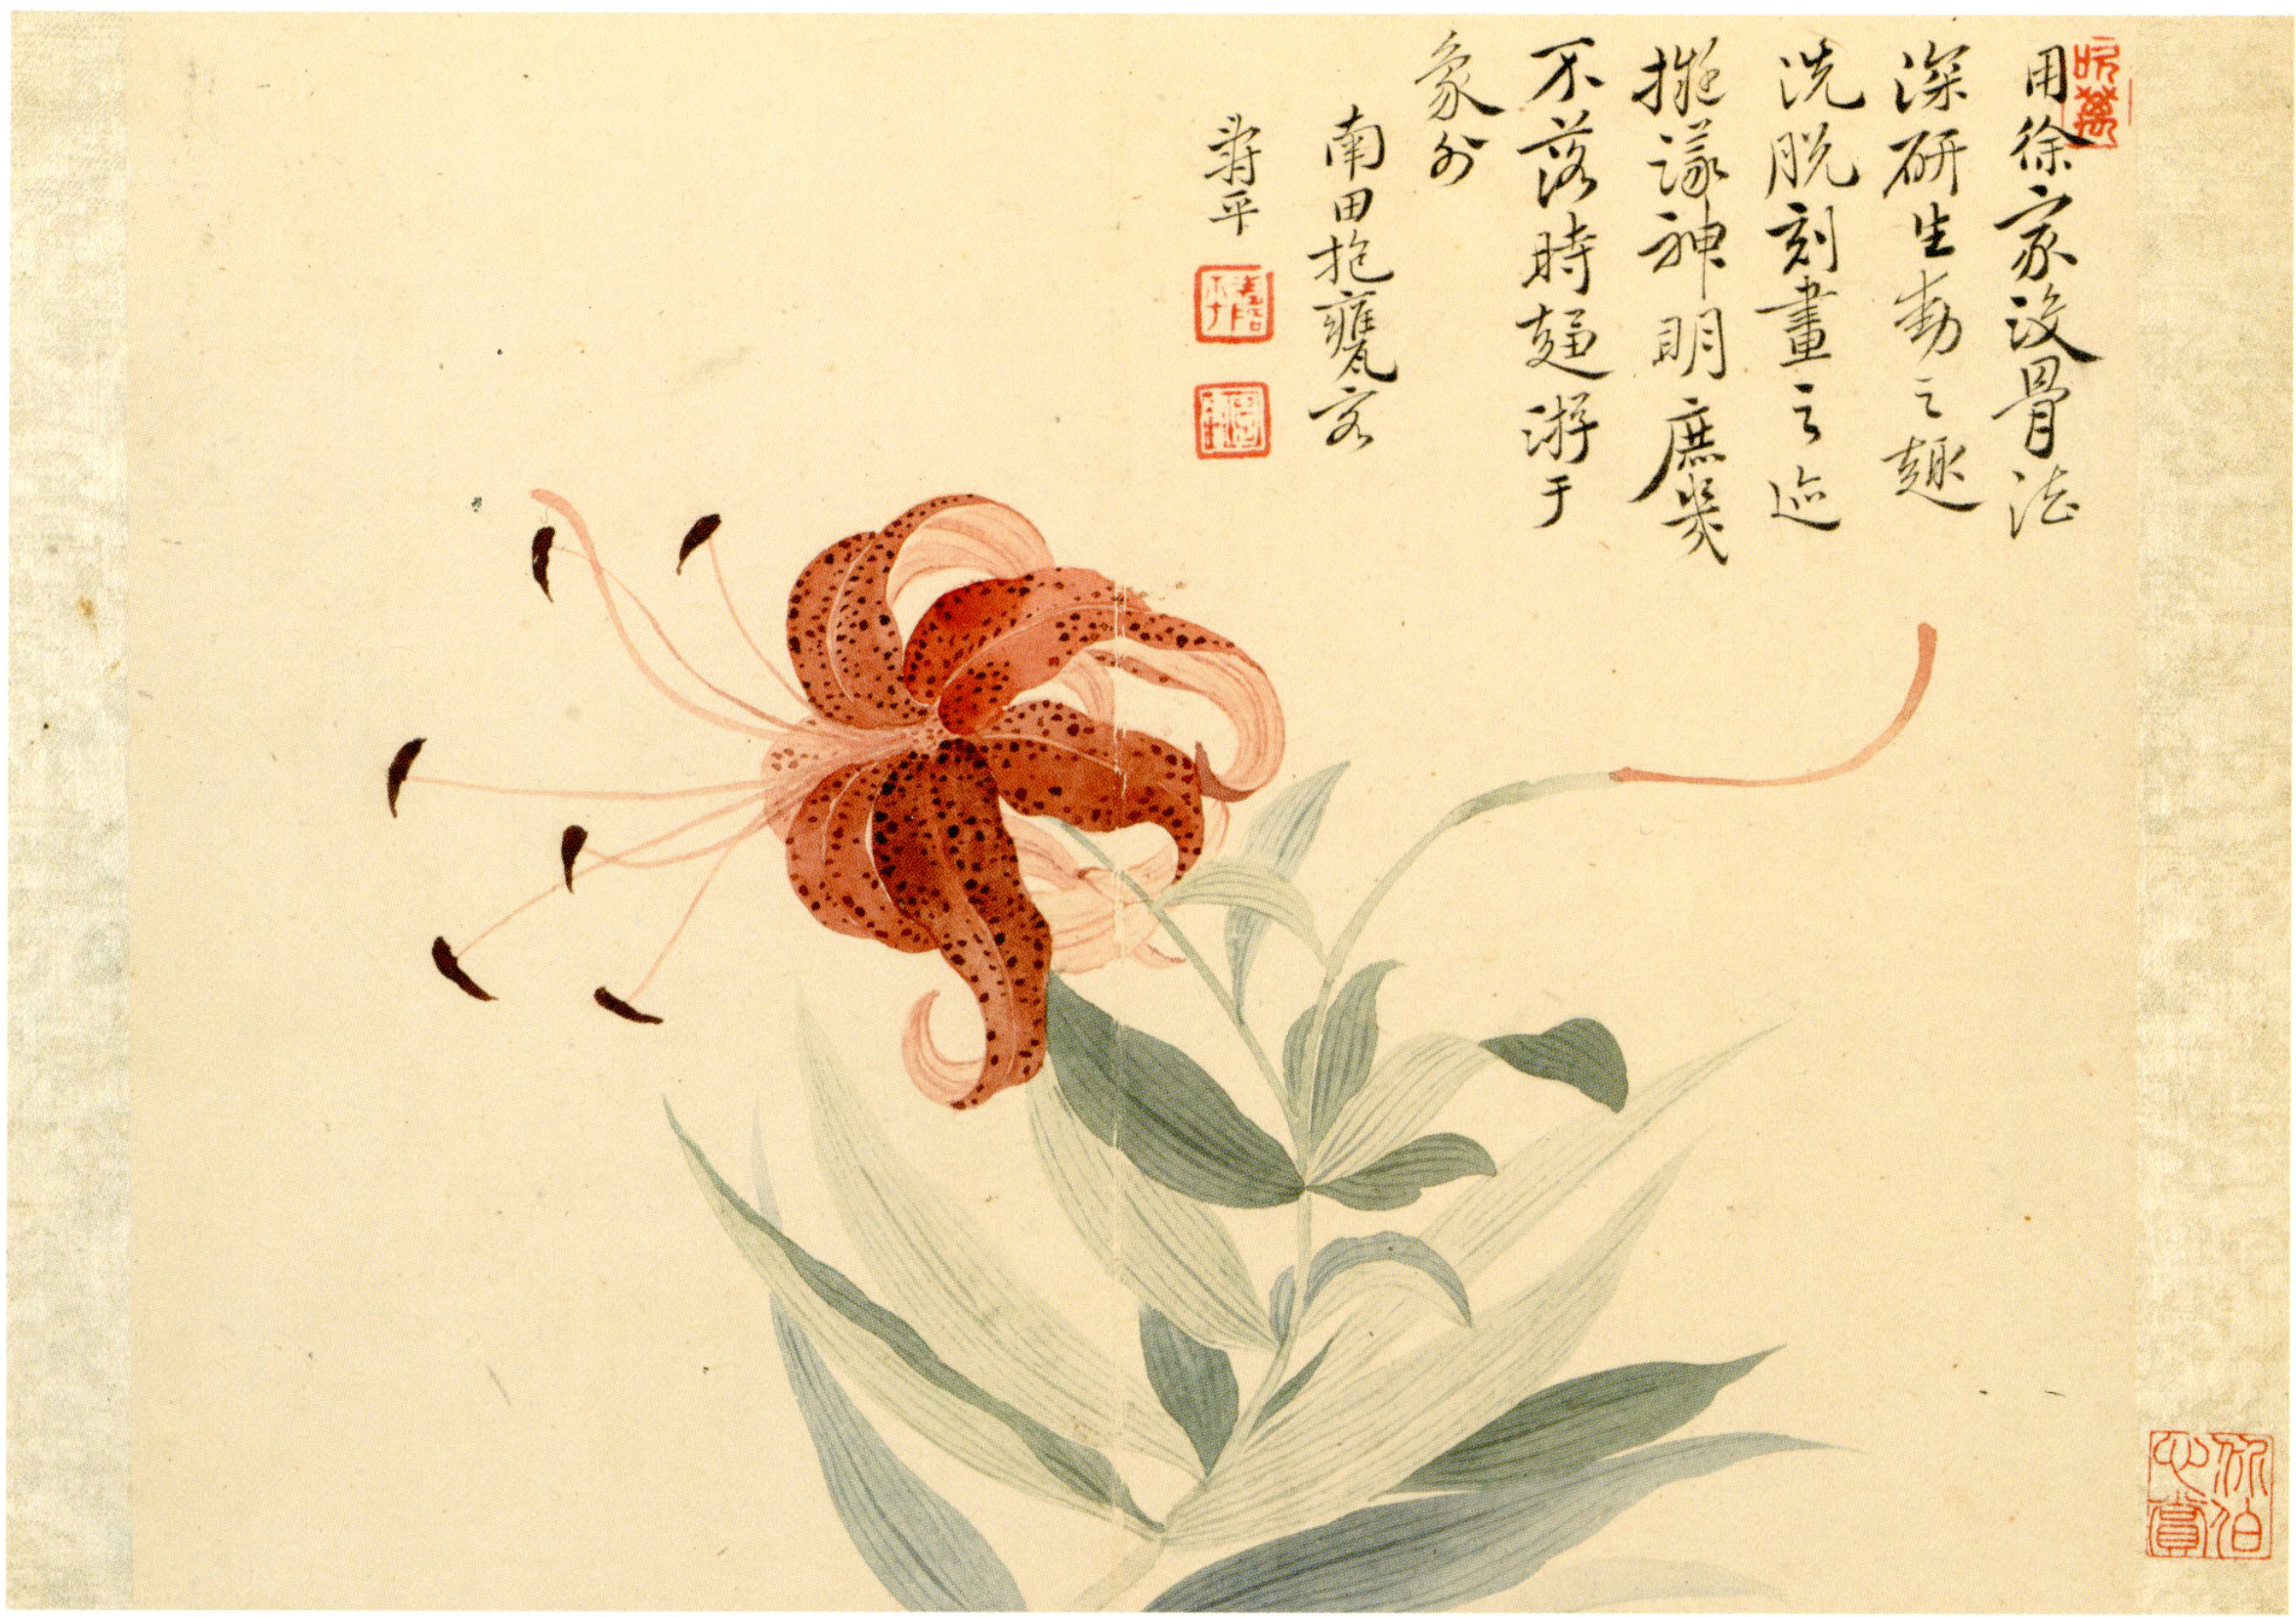 用徐家沒骨法
深研生動之趣
洗脫刻畫之迹
擬議神明庶幾
不落時趨游于
象外
南田抱甕客
壽平